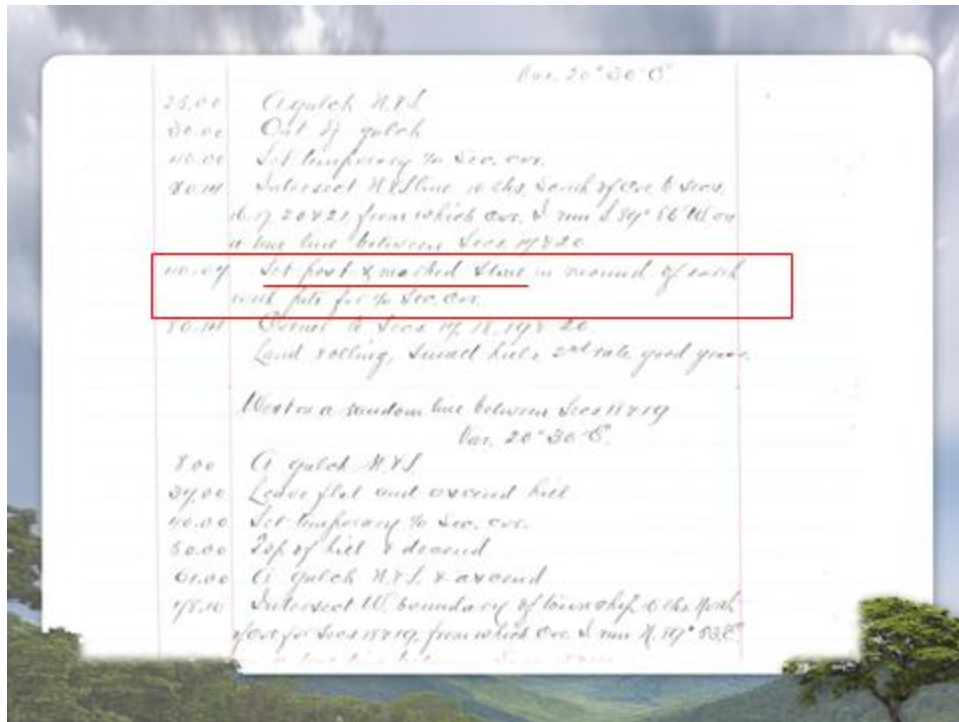 Var. 20° 30' E.
25.00 A gulch N. & S.
30.00 Out of gulch
40.00 Set temporary ¼ Sec. cor.
80.14 Intersect N. & S. line 10 lks. South of cor. to Secs.
16. 17. 20 & 21 from which cor. I run S 89° 56' W on
a true line between Secs. 17 & 20
40.07 Set post & marked stone in mound of earth
with pits for ¼ Sec. cor.
80.14 Corner to Secs. 17, 18, 19 & 20
Land rolling, 2nd rate, good grass.
West on a random line between Secs 18 & 19
Var. 20° 30' E.
8.00 A gulch N. & S.
39.00 Leave flat and ascend hill
40.00 Set temporary ¼ Sec. cor.
50.00 Top of hill & descend
61.00 A gulch N. & S. & ascend
78.10 Intersect W. boundary of township 6 lks North
of cor for Secs 18 & 19, from which cor. I run N. 89° 53' E.